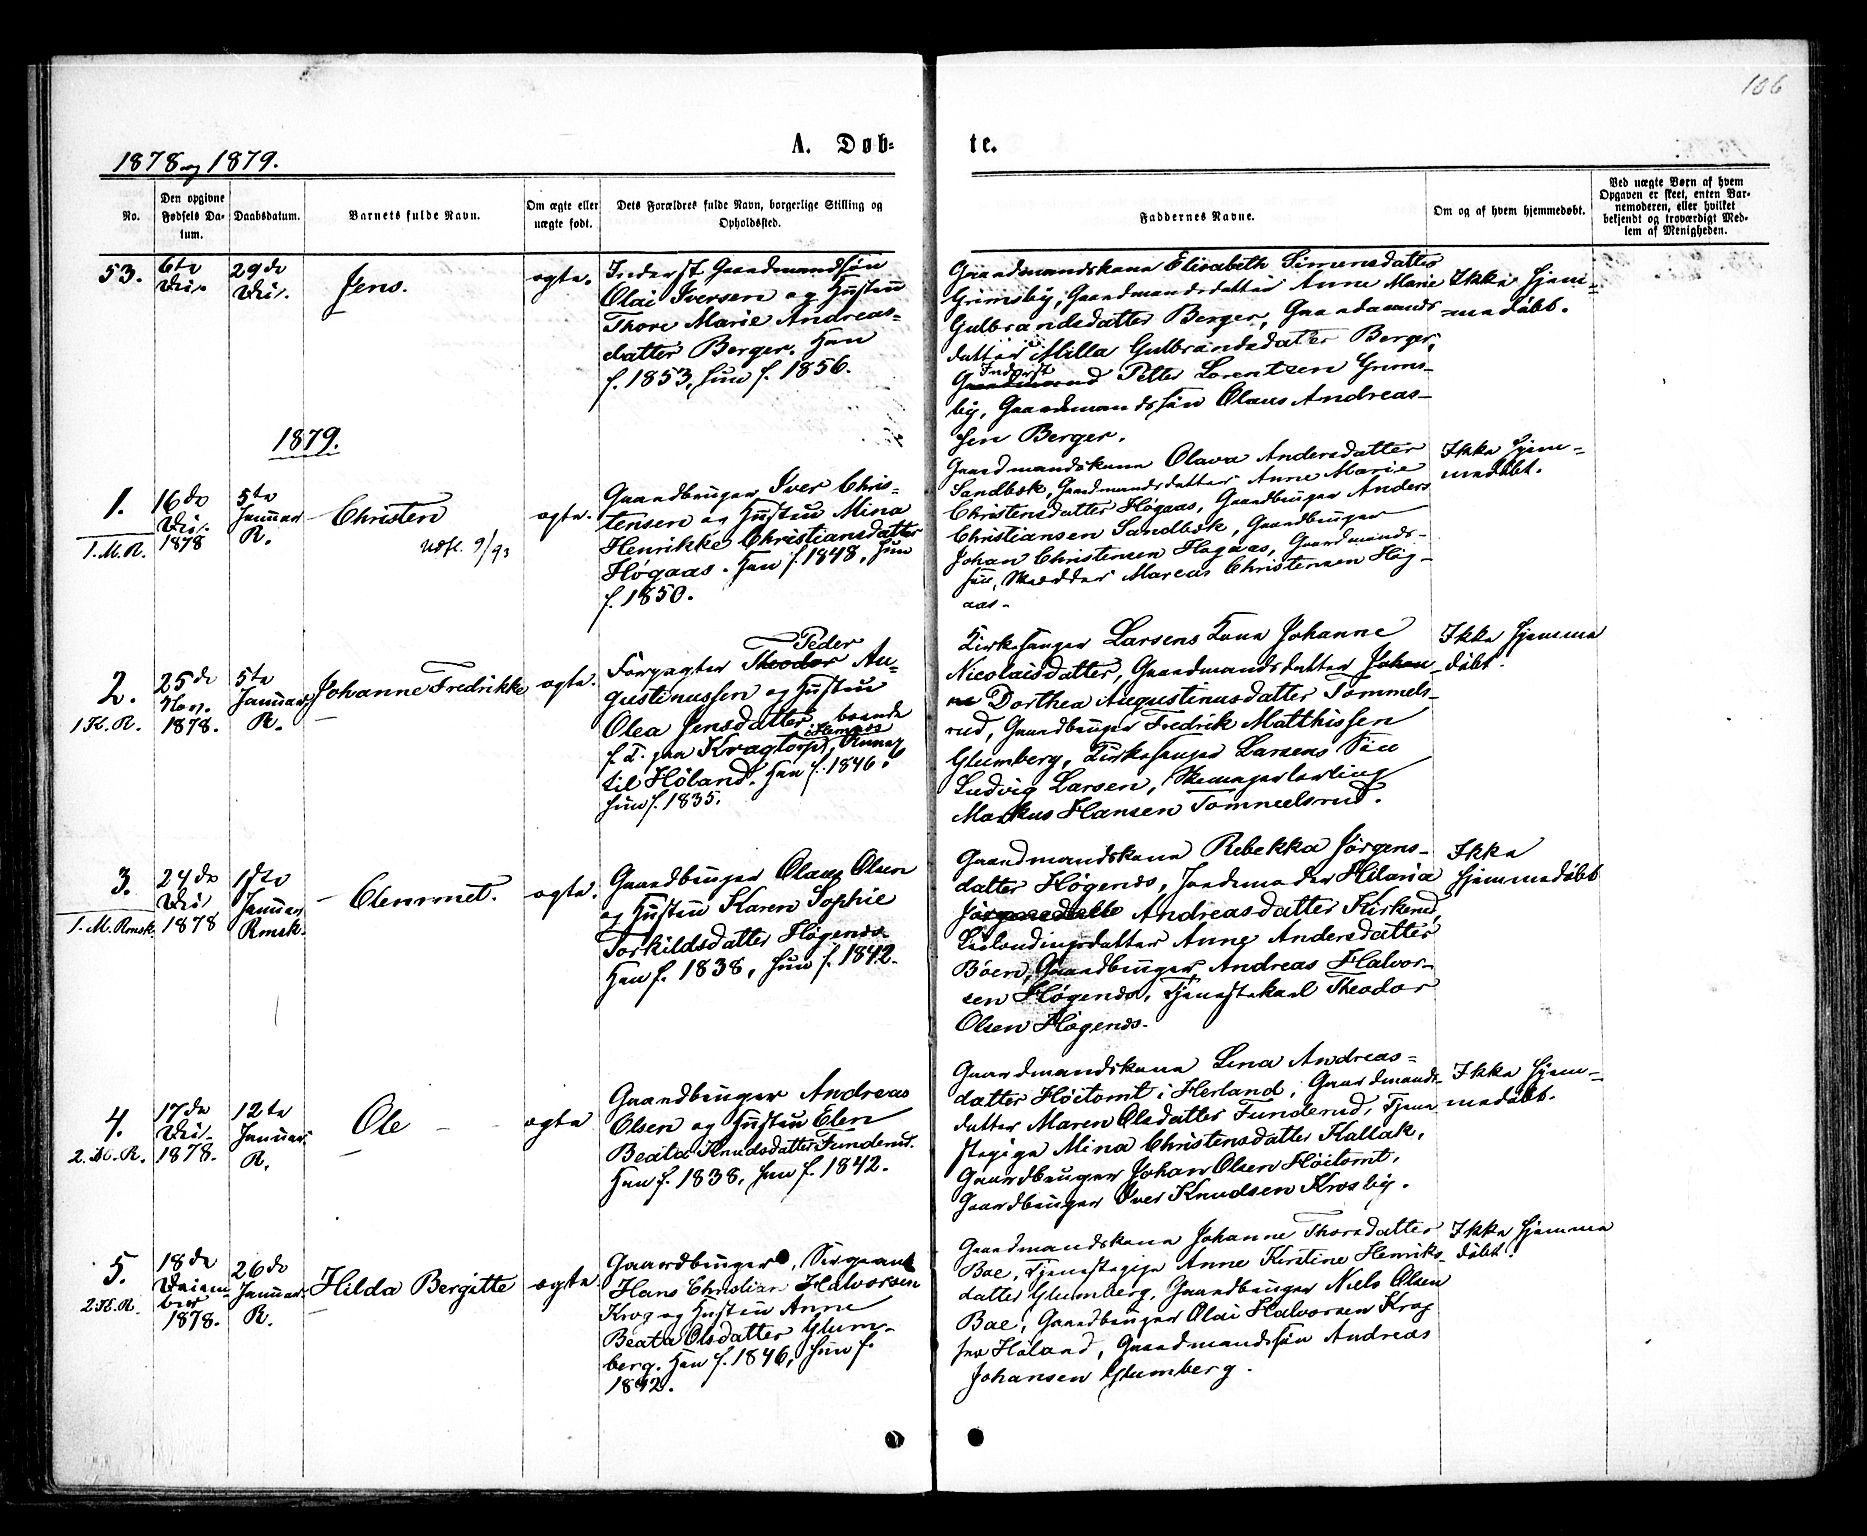 106
1878 og 1879.
A. Døb-
te.
No.
Den opgivne
Fødsels Da-
tum.
Daabsdatum.
Barnets fulde Navn.
Om ægte eller
uægte født.
Dets Forældres fulde Navn, borgerlige Stilling og
Opholdssted.
Faddernes Navne.
Om og af hvem hjemmedøbt.
Ved uægte Børn af hvem
Opgaven er skeet, enten Bar-
nemoderen, eller hvilket
bekjendt og troværdigt Med-
lem af Menigheden.
53.
6te
Dec.
29de
Dec.
Jens.
ægte.
Inderst Gaardmandssøn
Olai Iversen og Hustru
Thore Marie Andreas-
datter Berger. Han
f. 1853, hun f. 1856.
Gaardmandskone Elisabeth Simensdatter
Grimsby, Gaardmandsdatter Anne Marie
Gulbrandsdatter Berger, Gaardmands
datter Milla Gulbrandsdatter Berger,
Inderst
Gaardmand Petter Lorentsen Grims-
by, Gaardmandssøn Olaus Andreas-
sen Berger.
Ikke hjem-
medøbt.
1879.
1.
1. M. R.
16de
Dec.
1878
5te
Januar
R.
Christen
Udfl. 9/93
ægte.
Gaardbruger Iver Chris-
tensen og Hustru Mina
Henrikke Christiansdatter
Høgaas. Han f. 1848, hun
f. 1850.
Gaardmandskone Olava Andersdatter
Sandbæk, Gaardmandsdatter Anne Marie
Christensdatter Høgaas, Gaardbruger Anders
Christiansen Sandbæk, Gaardbruger
Johan Christensen Høgaas, Gaardmands-
søn, Skrædder Marcus Christensen Høg-
aas.
Ikke hjem-
medøbt.
2.
1 K. R.
25de
Nov.
1878.
5te
Januar
R.
Johanne Fredrikke
ægte.
Peder
Forpagter Theodor Au-
gustinussen og Hustru
Olea Jensdatter, boende
i Hemnæs
f. T. paa Kragtorp, Annex
til Høland. Han f. 1846.
hun f. 1835.
Kirkesanger Larsens Kone Johanne
Nicolaisdatter, Gaardmandsdatter Johan-
ne Dorthea Augustinusdatter Tommels-
rud, Gaardbruger Fredrik Matthissen
Glumberg, Kirkesanger Larsens Søn
Ludvig Larsen, Skomagerlærling
Markus Hansen Tommelsrud.
Ikke hjemme
døbt.
3.
1. M. Rmsk.
24de
Dec.
1878
1ste
Januar
Rmsk.
Clemmet.
ægte.
Gaardbruger Olaus Olsen
og Hustru Karen Sophie
Torkildsdatter Høgenæs.
Han f. 1838, hun f. 1842.
Gaardmandskone Rebekka Jørgens-
datter Høgenæs, Jordemoder Helaria
Jørgensdatte Andreasdatter Kirkerud,
Leilendingsdatter Anne Andersdatter
Bøen, Gaardbruger Andreas Halvor-
sen Høgenæs, Tjenestekarl Theodor
Olsen Høgenæs.
Ikke
hjemmedøbt
4.
2. K. R.
17de
Dec.
1878.
12te
Januar
R.
Ole
ægte
Gaardbruger Andreas
Olsen og Hustru Elen
Beata Knudsdatter Funderud.
Han f. 1838, hun f. 1842.
Gaardmandskone Lena Andreas-
datter Høitomt i Herland, Gaardmands-
datter Maren Olsdatter Funderud, Tjene
stepige Mina Christensdatter Kallak,
Gaardbruger Johan Olsen Høitomt,
Gaardbruger Iver Knudsen Krosby.
Ikke hjem-
medøbt.
5.
2 K. R.
18de
Decem-
ber
1878.
26de
Januar
R.
Hilda Bergitte
ægte
Gaardbruger, Sergeant
Hans Christian Halvorsen
Krog og Hustru Anne
Beata Olsdatter Glum-
berg. Han f. 1846, hun f.
1842.
Gaardmandskone Johanne Thorsdatter
Boe, Tjenestepige Anne Kerstine Henriks-
datter Glumberg, Gaardbruger Niels Olsen
Boe, Gaardbruger Olai Halvorsen Krog
fra Høland, Gaardmandssøn Andreas
Johansen Glumberg.
Ikke hjemme
døbt.